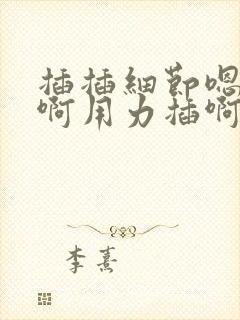 插插細節嗯
啊用力插啊
李熹